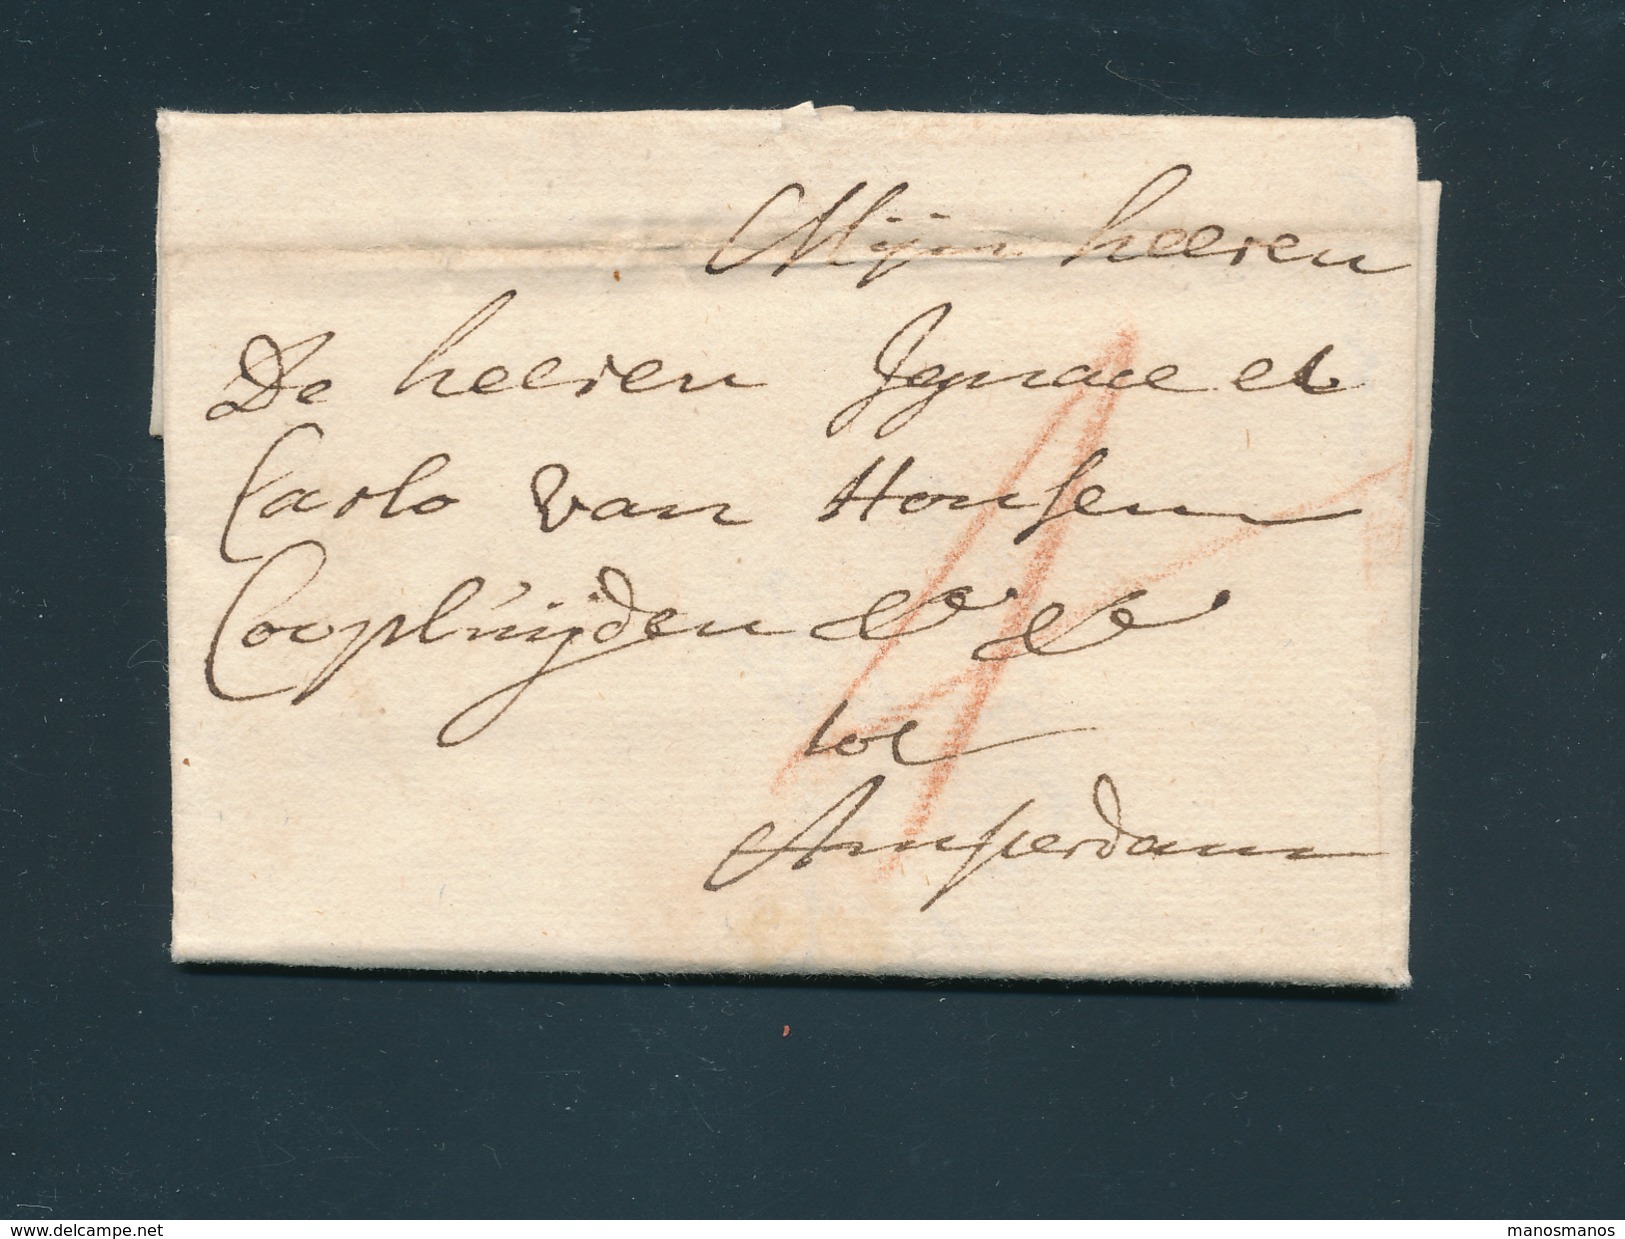 Mijn heeren
De heeren Jgnace et
Carlo van Housem
Coopluijden &c &c
tot
Amsterdam
www.delcampe.net
manosmanos